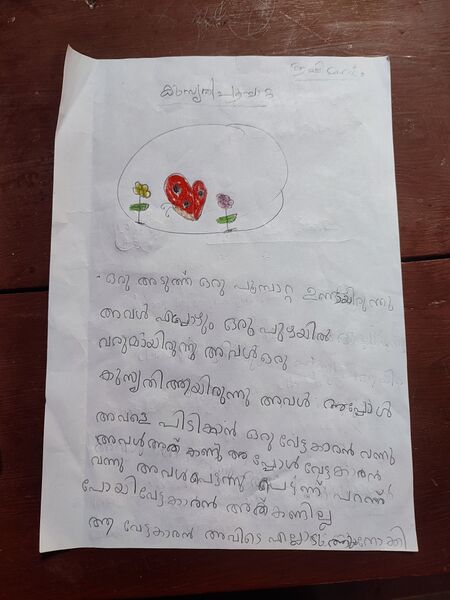 കുസൃതി പൂമ്പാറ്റ
. ഒരു അടുത്ത് ഒരു പൂമ്പാറ്റ ഉണ്ടായിരുന്നു
അവൾ എപ്പോഴും ഒരു പുഴയിൽ
വരുമായിരുന്നു അവൾ ഒരു
കുസൃതി ആയിരുന്നു അവൾ അപ്പോൾ
അവളെ പിടിക്കാൻ ഒരു വേട്ടകാരൻ വന്നു
അവൾ അത് കണ്ടു അപ്പോൾ വേട്ടകാരൻ
വന്നു അവൾ പെട്ടന്ന് പെട്ടന്ന് പറന്ന്
പോയി വേട്ടകാരൻ അത് കണ്ടില്ല
ആ വേട്ടകാരൻ അവിടെ എല്ലാടത്തും നോക്കി